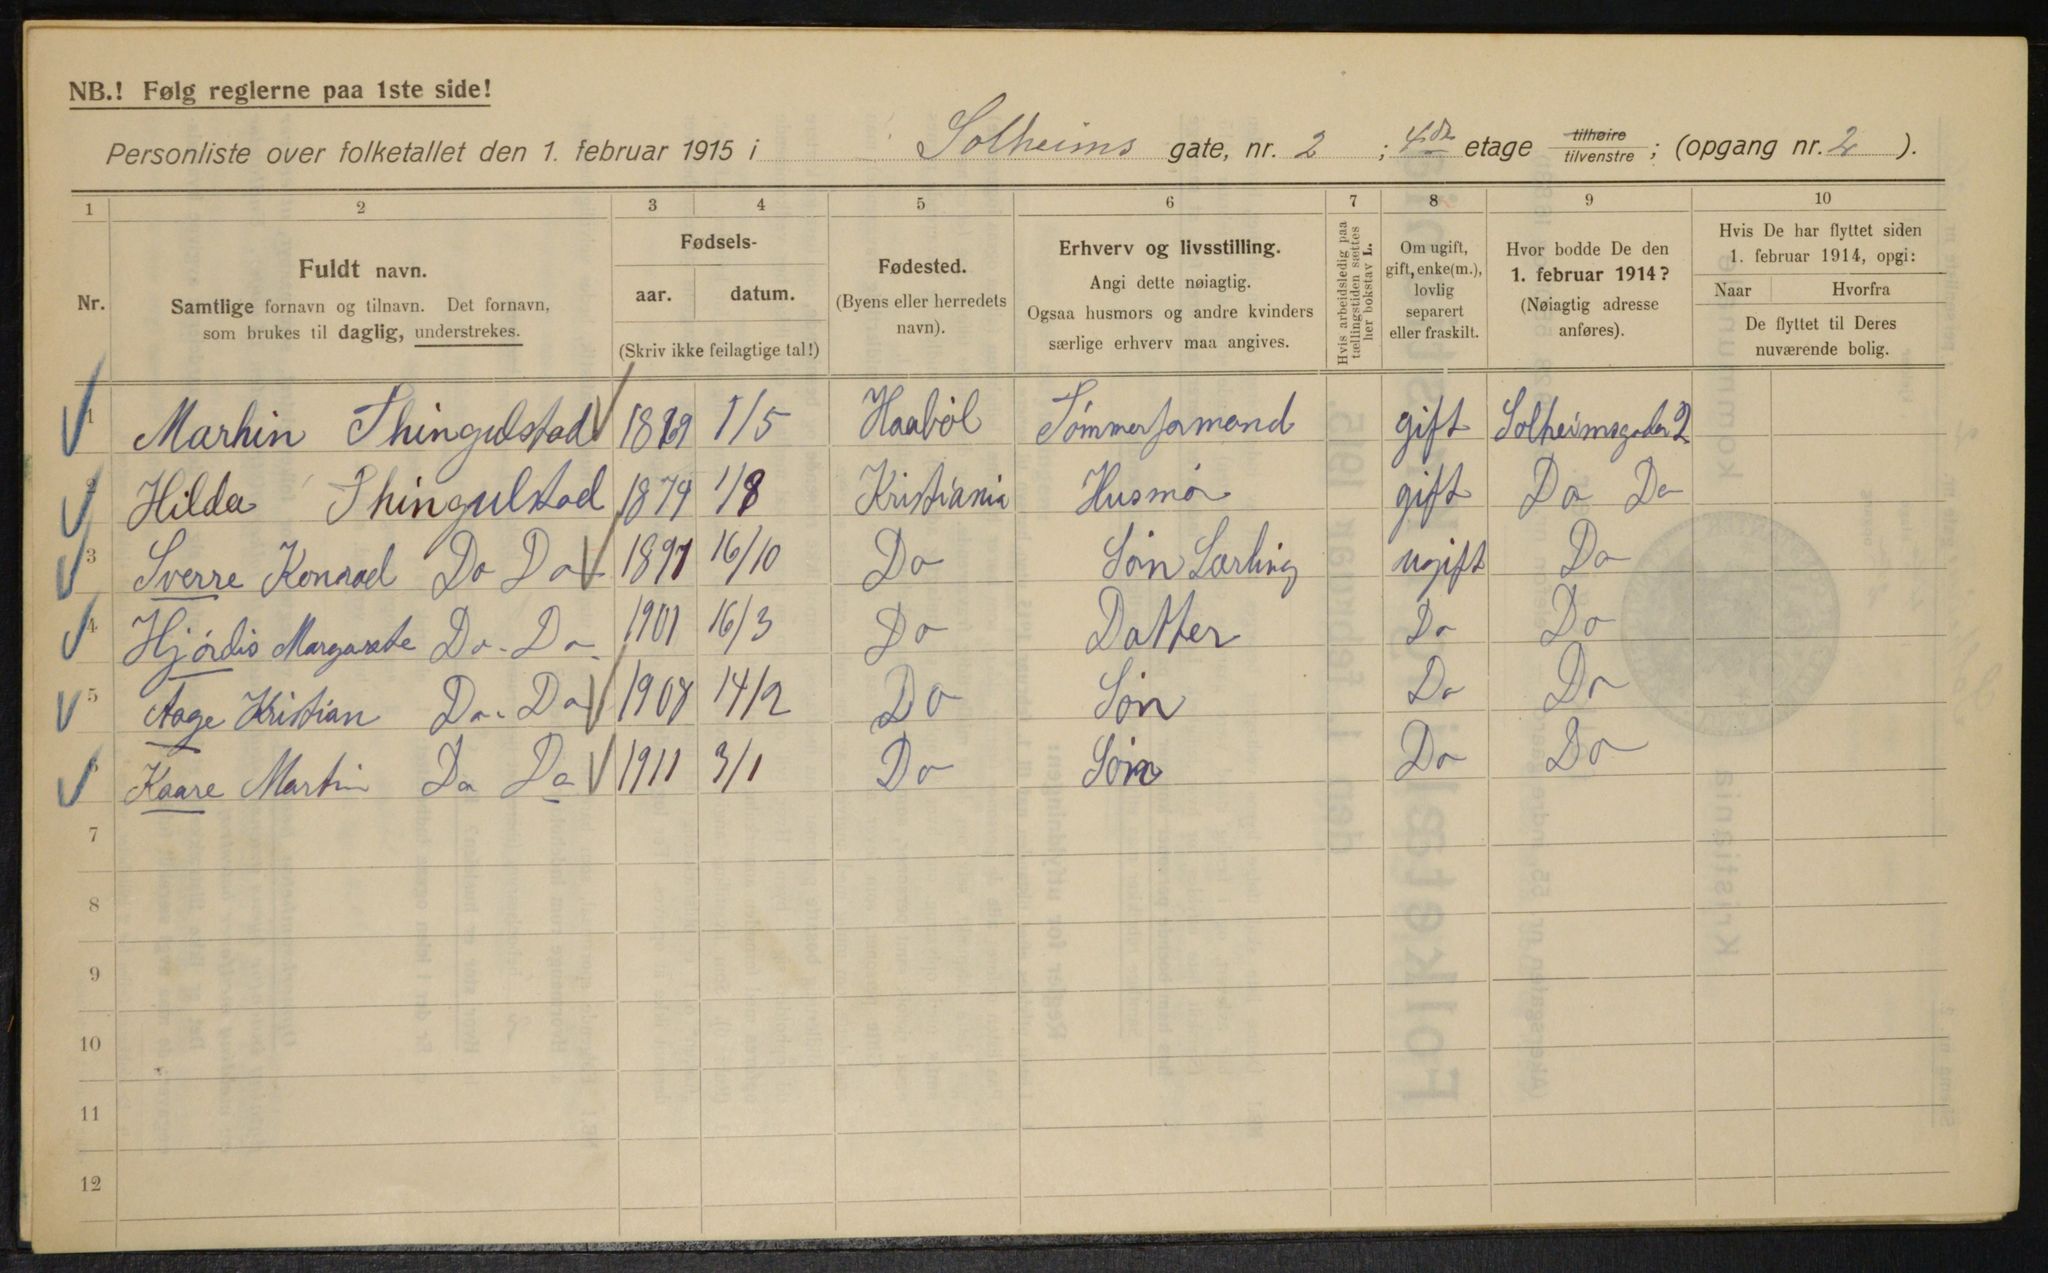 NB.! Følg reglerne paa 1ste side!
Personliste over folketallet den 1. februar 1915 i Solheims gate, nr. 2 ; 4de etage tilhøire/tilvenstre ; (opgang nr. 2 ).
1 2 3 4 5 6 7 8 9 10
Nr.
Fuldt navn.
Samtlige fornavn og tilnavn. Det fornavn,
som brukes til daglig, understrekes.
Fødsels-
aar. datum.
(Skriv ikke feilagtige tal!)
Fødested.
(Byens eller herredets
navn).
Erhverv og livsstilling.
Angi dette nøiagtig.
Ogsaa husmors og andre kvinders
særlige erhverv maa angives.
Hvis arbeidsledig paa
tællingstiden sættes
her bokstav L.
Om ugift,
gift, enke(m.),
lovlig
separert
eller fraskilt.
Hvor bodde De den
1. februar 1914?
(Nøiagtig adresse
anføres).
Hvis De har flyttet siden
1. februar 1914, opgi:
Naar Hvorfra
De flyttet til Deres
nuværende bolig.
1 Martin Thingulstad 1/5 Haabøl Tømmerformand gift Solheimsgaden 2
2 Hilda Thingulstad 1879 1/8 Kristiania Husmor gift Do Do
3 Sverre Konrad Do Do 1897 16/10 Do Søn Lærling ugift Do
4 Hjørdis Margarete Do. Do. 1901 16/3 Do Datter Do Do
5 Aage Kristian Do. Do 1908 14/2 Do Søn Do Do
6 Kaare Martin Do Do 1911 3/1 Do Søn Do Do
7
8
9
10
11
12